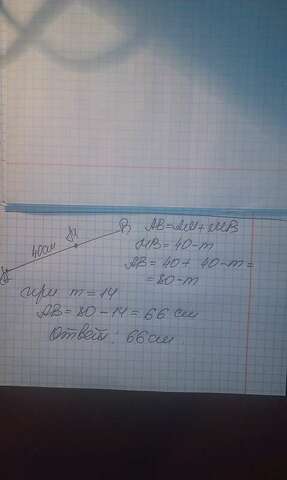 AB=AM+MB
M
B
40см
MB=40-m
A
AB=40+40-m=
=80-m
при m=14
AB=80-14=66 см
Ответ: 66см